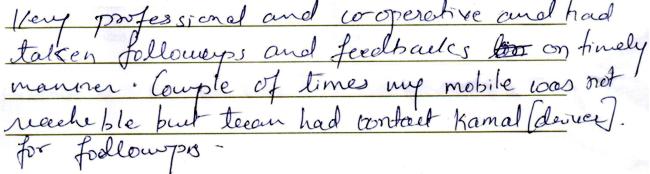 Very professional and co-operative and had
taken followups and feedbacks on timely
manner. Couple of times my mobile was not
reacheble but team had contact Kamal [deiver].
for followups -